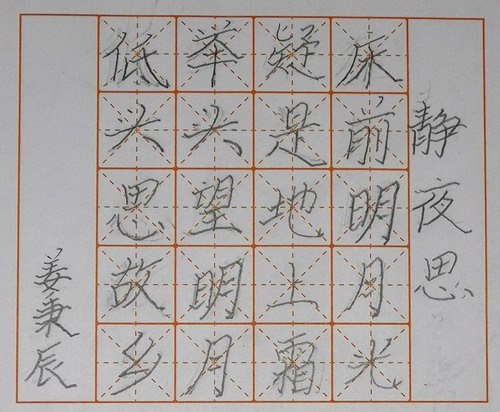 静夜思
床前明月光
疑是地上霜
举头望明月
低头思故乡
姜秉辰